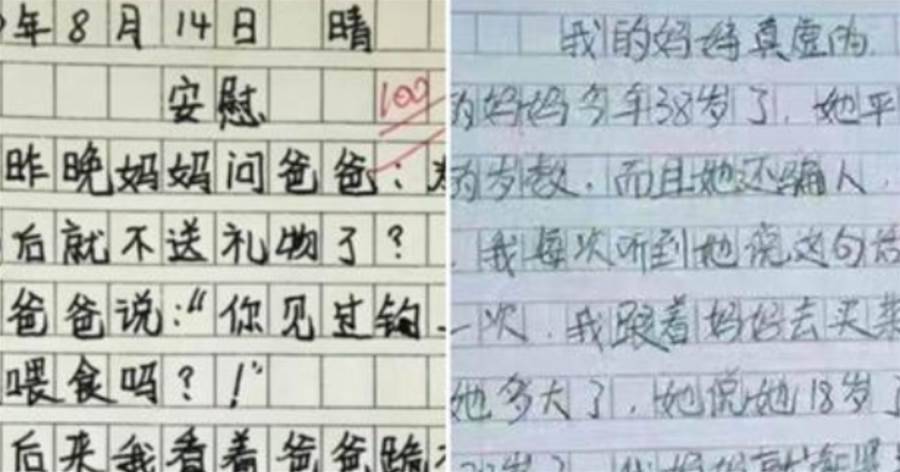 年8月14日 晴
安慰
100
昨晚妈妈问爸爸:
后就不送礼物了?
爸爸说:“你见过钩
喂食吗?!”
后来我看着爸爸跪
我的妈妈真虚伪
妈妈今年38岁了,她平
岁数,而且她还骗人,
我每次听到她说这句话
一次,我跟着妈妈去买菜
她多大了,她说她18岁了